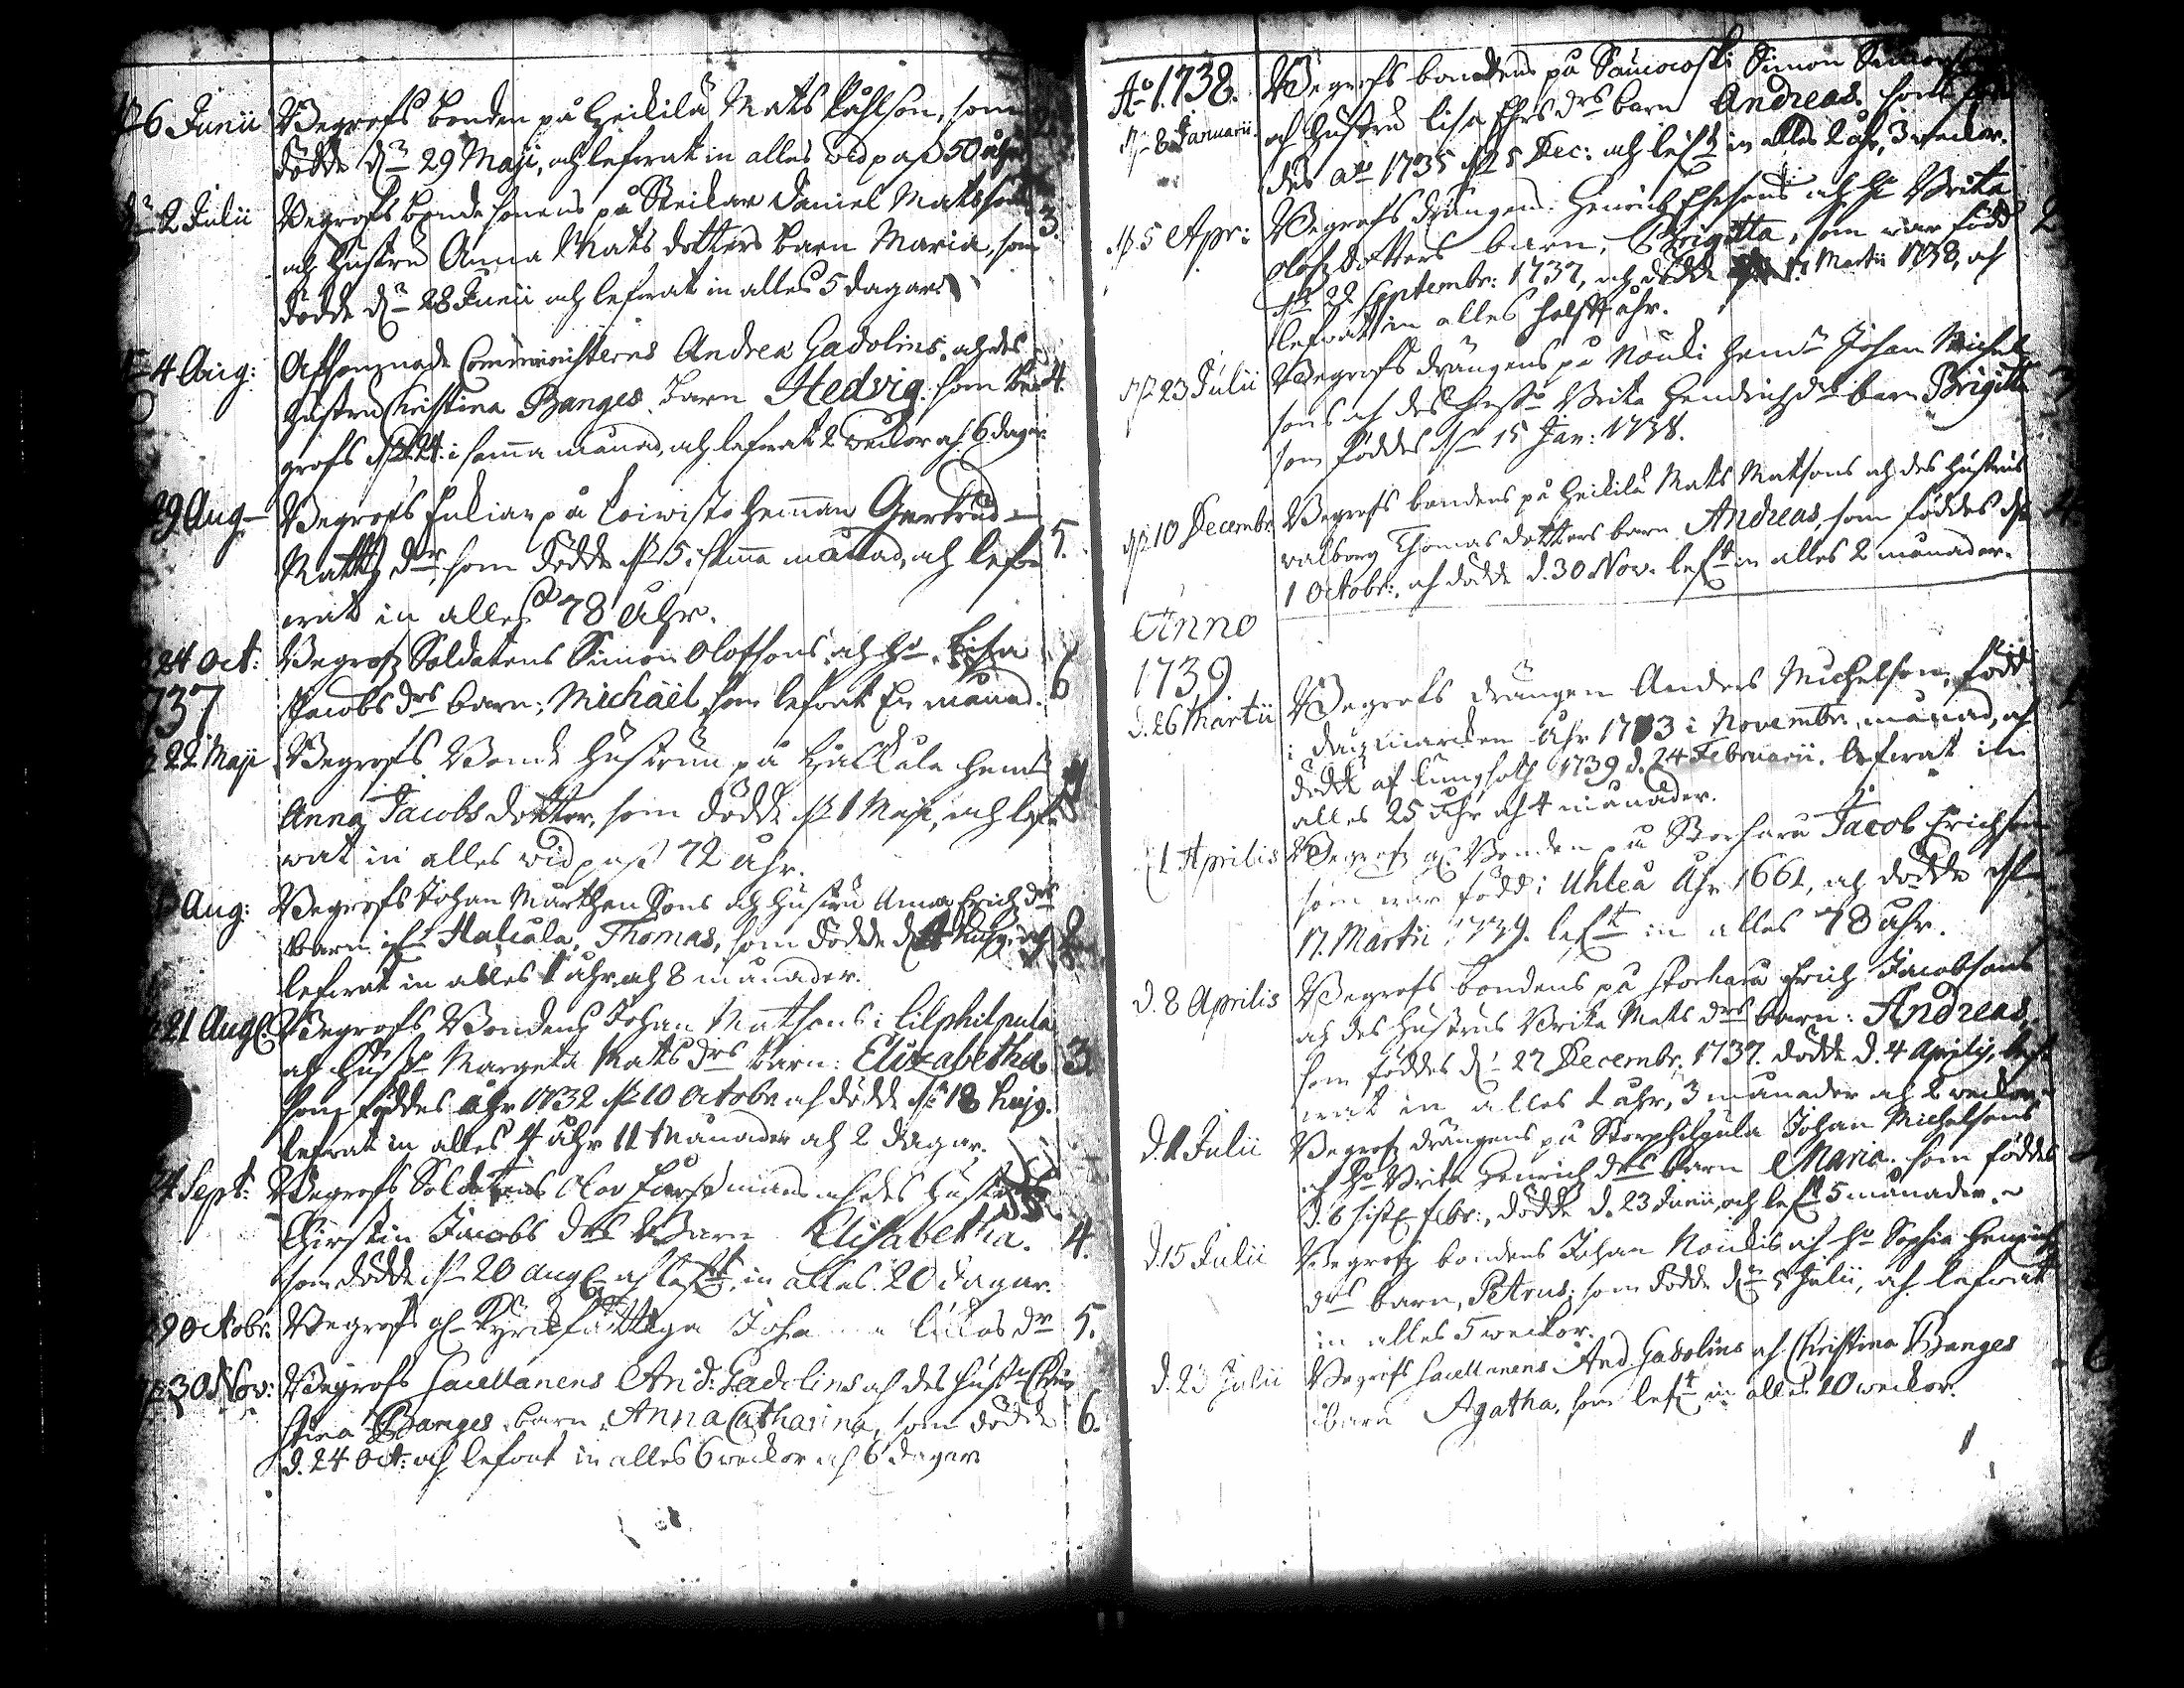 6 Junii Begrofs bonden på Heikilä Mats Påhlson, som
dödde dn 29 Maji, och lefwat in alles widpass 50 åhr
2 Julii Begrofs bondesonens på Reikar Daniel Matssons 3.
och hustru Anna Mats dotters barn Maria, som
dödde dn 28 Junii och lefwat in alles 5 dagar
4 Aug: Afsomnade Comministerns Andrea Gadolins, och des
hustru Christina Banges barn Hedvig. som be- 4.
grofs 24. i samma månad, och lefwat 2 weckor och 6 dagar
29 Aug Begrofs Enkian på Koiwisto hemman Gertrud
Matts dr, som dödde 5 i samma månad, och lef- 5.
wat in alles 78 åhr.
24 Oct: Begrofs Soldatens Simon Olofsons och h. Lisa
Jacobs drs barn; Michäel, som lefwat En månad. 6
1737
22 Maji Begrofs Bonde hustrun på Källala hem
Anna Jacobs dotter, som dödde 1 Maji, och lef-
wat in alles widpass 72 åhr.
Aug: Begrofs Johan Mårthen Sons och hustru Anna Erich drs
barn Thomas, som dödde
lefwat in alles 1 åhr och 8 månader.
21 Aug: Begrofs Bondens Johan Mathsons i Lilphilpula
och hustr Margeta Matts drs barn: Elizabetha 3.
som föddes åhr 1732 10 Octobr och dödde 18 hujg.
lefwat in alles 4 åhr 11 Månader och 2 dagar.
4 Sept: Begrofs Soldatens Olov mans och des hustr
Chirstin Jacobs drs Barn Elisabetha. 4.
som dödde 20 aug och left in alles 20 dagar.
9 Octobr: Begrofs Johanna Lucas dr 5.
30 Nov: Begrofs Sacellanens And: Gadolins och des hustr Chri-
stina Banges barn Anna Catharina, som dödde 6.
d. 24 Oct: och lefwat in alles 6 weckor och 6 dagar
Ao 1738. Begrofs bondens på Simon
8 Januarii. och hustru Lisa Ehrs drs barn Andreas.
des ao 1735 25 Dec: och left in alles 2 åhr, 3 weckor.
5 Apr: Begrofs drängens Henrich och h. Brita
Olofs dotters barn, Brigitta, som war född 2
Septembr: 1737, och dödde Martii 1738, och
lefwat in alles halft åhr.
23 Julii Begrofs drängens på Nouki hem Johan Michel-
sons och des hustr Brita Hendrich drs barn Brigitta 3
som föddes 15 Jan: 1738.
10 Decembr. Begrofs bondens på Heikilä Mats Matsons och des hustrus
walborg Thomas dotters barn Andreas, som föddes 4.
1 Octobr:, och dödde d. 30 Nov. left in alles 2 månader.
Anno
1739.
d. 26 Martii Begrofs drängen Anders Michelson, född
i åhr 1713 i Novembr. månad, och
dödde af lungsoth 1739 d. 24 Februarii. lefwat in
alles 25 åhr och 4 månader.
1 Aprilis Begrofs gl. Bonden på Storharu Jacob Erichson
som war född i Uhleå åhr 1661, och dödde
17. Martii 1739. left in alles 78 åhr.
d. 8 Aprilis Begrofs bondens på Storharu Erich Jacobsons
och des hustrus Brita Mats drs barn: Andreas,
som föddes d. 27 Decembr. 1737. dödde d. 4 Aprilis, lef-
wat in alles 1 åhr, 3 månader och 2 weckor.
d. 1 Julii Begrofs drängens på Storphilpula Johan Michelsons
och h. Brita Henrich drs barn Maria. som föddes
d. 6 sistl febr:, dödde d. 23 Junii, och left 5 månader.
d. 15 Julii Begrofs bondens Johan Noukis och h. Sophia Henrich
drs barn, Petrus; som dödde dn 5 Julii, och lefwat
in alles 5 weckor.
d. 23 Julii Begrofs Sacellanens And. Gadolins och Christina Banges 6
barn Agatha, som left in alles 10 weckor.